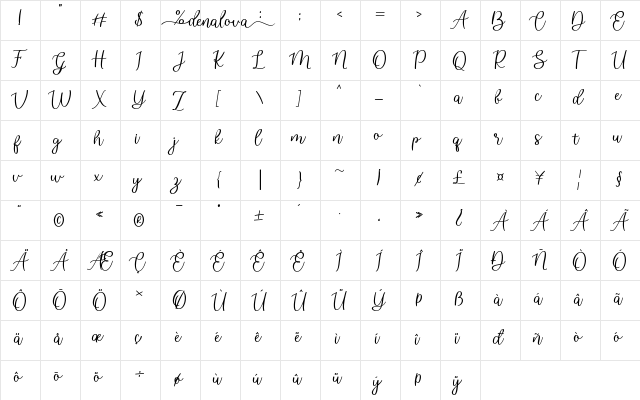 ! " # $ %denalova: ; < = > A B C D E
F G H I J K L M N O P Q R S T U
V W X Y Z [ \ ] ^ _ ` a b c d e
f g h i j k l m n o p q r s t u
v w x y z { | } ~ ¢ £ ¤ ¥ ¦ §
¨ © « ® ¯ ± ´ · » ¿ À Á Â Ã
Ä Å Æ Ç È É Ê Ë Ì Í Î Ï Ð Ñ Ò Ó
Ô Õ Ö × Ø Ù Ú Û Ü Ý Þ ß à á â ã
ä å æ ç è é ê ë ì í î ï ð ñ ò ó
ô õ ö ÷ ø ù ú û ü ý þ ÿ